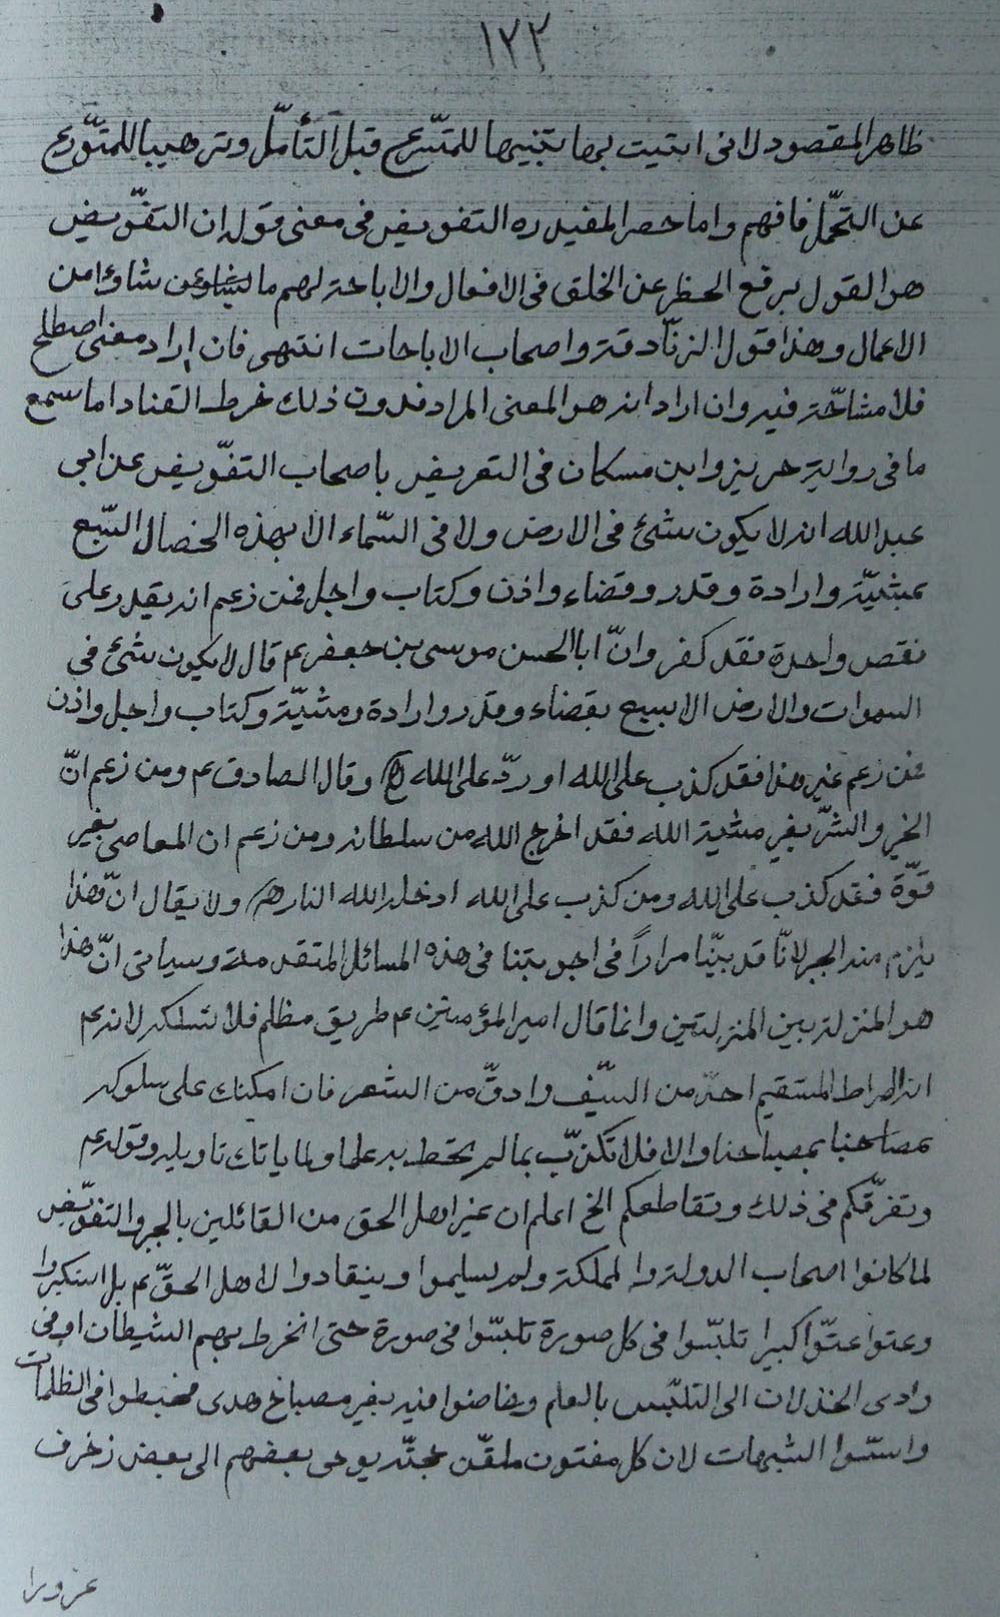 ١٢٢
ظاهر المقصود لانى اتيت بها تنبيها للمتسرّع قبل التأمّل وترهيبا للمتورّع
عن التحمّل فافهم واما حصر المفيد ره التفويض فى معنى قوله ان التفويض
هو القول برفع الحظر عن الخلق فى الافعال والاباحة لهم ما شاؤا من
الاعمال وهذا قول الزنّادقة واصحاب الاباحات انتهى فان اراد معنى اصطلح
فلا مشاحّة فيه وان اراد انه هو المعنى المراد فدون ذلك خرط القتاد اما سمع
ما فى رواية حريز وابن مسكان فى التعريض باصحاب التفويض عن ابى
عبد الله انه لا يكون شئ فى الارض ولا فى السّماء الا بهذه الخصال السّبع
بمشيّة وارادة وقدر وقضاء واذن وكتاب واجل فمن زعم انه يقدر على
نقص واحدة فقد كفر وانّ ابا الحسن موسى بن جعفر ع قال لا يكون شئ فى
السموات والارض الا بسبع بقضاء وقدر وارادة ومشيّة وكتاب واجل واذن
فمن زعم غير هذا فقد كذب على الله او ردّ على الله وقال الصادق ع ومن زعم انّ
الخير والشرّ بغير مشية الله فقد اخرج الله من سلطانه ومن زعم ان المعاصى بغير
قوّة فقد كذب على الله ومن كذب على الله ادخله الله النار ولا يقال انّ هذا
يلزم منه الجبر لانّا قد بيّنا مراراً فى اجوبتنا فى هذه المسائل المتقدمة وسياتى انّ هذا
هو المنزلة بين المنزلتين وانما قال امير المؤمنين ع طريق مظلم فلا تسلكه لانه ع
انه الصراط المستقيم احدّ من السّيف وادقّ من الشعر فان امكنك على سلوكه
بمصباحنا والا فلا تكذّب بما لم تحط به علما ولما ياتك تاويله وقوله ع
وتفرّقكم فى ذلك وتقاطعكم الخ اعلم ان غير اهل الحق من القائلين بالجبر والتفويض
لما كانوا اصحاب الدولة والمملكة ولم يسلموا وينقادوا لاهل الحقّ ع بل استكبروا
وعتوا عتوّا كبيرا تلبّسوا فى كل صورة تلبسّوا فى صورة حتى انخرط بهم الشيطان فى
وادى الخذلان الى التلبّس بالعلم وخاضوا فيه بغير مصباح هدى فخبطوا فى الظلمات
الشبهات لان كل مفتون ملقّن حجّته يوحى بعضهم الى بعض زخرف
غرورا